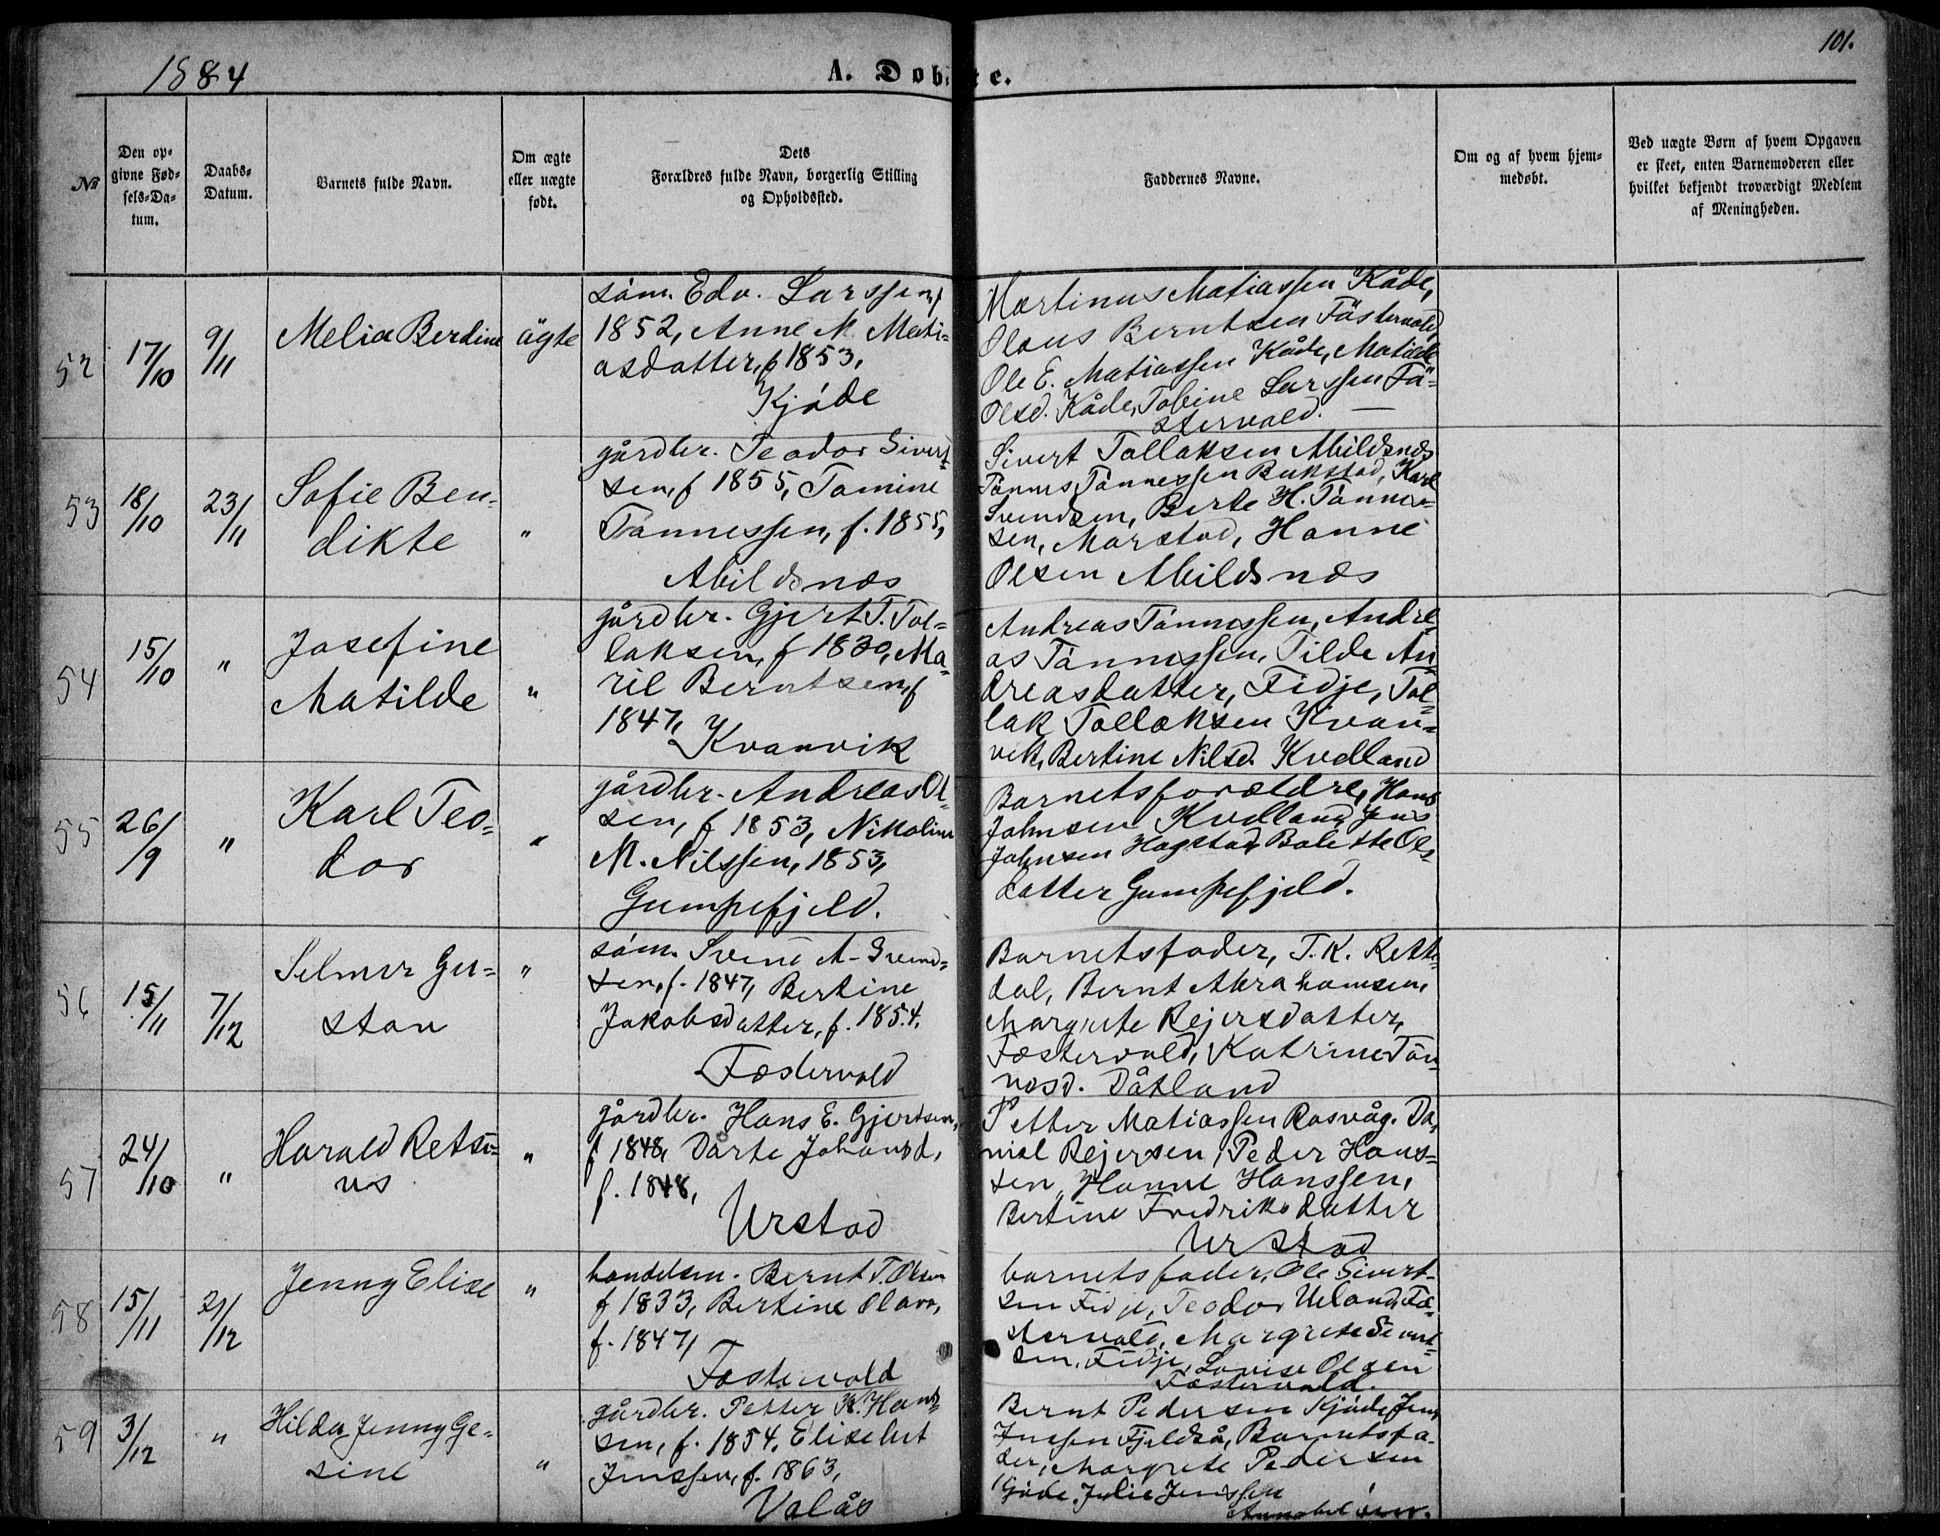 101.
1884
A. Døbte.
№
Den opgivne Fødsels-Datum.
Daabs-Datum.
Barnets fulde Navn.
Om ægte eller uægte født.
Dets Forældres fulde Navn, borgerlig Stilling og Opholdssted.
Faddernes Navne.
Om og af hvem hjemmedøbt.
Ved uægte Børn af hvem Opgaven er skeet, enten Barnemoderen eller hvilket bekjendt troværdigt Medlem af Meningheden.
52
17/10
9/11
Melia Berdine
ägte
söm. Edv. Larssen, f
1852, Anne M. Mati-
asdatter, f 1853,
Kjöde
Martinus Matiassen Kåde,
Olaus Berntsen Fästervold,
Ole E. Matiassen Kåde, Matilde
Olsd. Kåde, Tobine Larssen Fä-
stervold.
53
18/10
23/11
Sofie Ben-
dikte
"
gårdbr. Teodor Sivert-
sen, f 1855, Tomine
Tönnessen, f. 1855,
Abildsnæs
Sivert Tollaksen Abildsnæs
Tönnes Tönnessen Bukstad, Karl
Svendsen, Berte H. Tönnes-
sen, Marstad, Hanne
Olsen Abildsnæs
54
15/10
"
Josefine
Matilde
"
gårdbr. Gjert T. Tol-
laksen, f 1830, Ma-
ril Berntsen, f
1847, Kvanvik
Andreas Tönnessen, Andre-
as Tönnessen, Tilde An-
dreasdatter, Fidje, Tol-
lak Tollaksen Kvan-
vik, Bertine Nilsd. Kvelland
55
26/9
"
Karl Teo-
dor
"
gårdbr. Andreas Ol-
sen, f 1853, Nikoline
M. Nilssen, 1853,
Gumpefjeld.
Barnetsforældre, Hans
Johnsen Kvelland, Jens
Johnsen Hogstad, Bolette Ols-
datter Gumpefjeld.
56
15/11
7/12
Selmer Gu-
stav
"
söm. Svend A. Svend-
sen, f. 1847, Bertine
Jakobsdatter, f. 1854,
Fæstervold
Barnetsfader, T. K. Rett-
dal, Bernt Abrahamsen,
Margrete Rejersdatter,
Fæstervold, Katrine Tön-
nesd. Dåtland
57
24/10
"
Harald Retsi-
us
"
gårdbr. Hans E. Gjertsen,
f 1848, Dorte Johansd,
f. 1848,
Urstad
Petter Matiassen Rasvåg, Da-
niel Rejersen, Peder Hans-
sen, Hanne Hanssen,
Bertine Fredriksdatter
Urstad
58
15/11
21/12
Jenny Elise
"
handelsm. Bernt T. Olsen
f 1833, Bertine Olava,
f. 1847,
Fæstervold
barnetsfader, Ole Sivert-
sen Fidje, Teodor Ueland, Fæ-
stervold, Margrete Sivert-
sen, Fidje, Lovise Olsen
Fæstervold.
59
3/12
"
Hilda Jenny Ge-
sine
"
gårdbr. Petter K. Hans-
sen, f. 1854, Elisebet
Jenssen, f. 1863,
Valås
Bernt Pedersen Kjöde, Jens
Jenssen Fjeldså, Barnetsfa-
der, Margrete Pedersen
Kjöde, Julie Jenssen